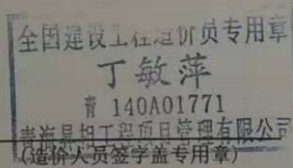 全国建设工程造价员专用章
丁敏萍
青 140A01771
青海昱相工程项目管理有限公司
(造价人员签字盖专用章)